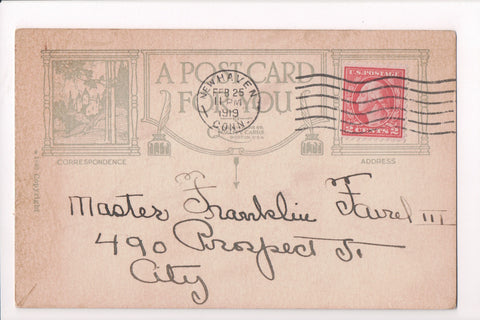 A POST CARD
FOR YOU
NEW HAVEN
FEB 26
11 PM
1919
CONN.
U.S. POSTAGE
2 CENTS 2
CORRESPONDENCE
ADDRESS
Master Franklin Farrel III
490 Prospect St
City